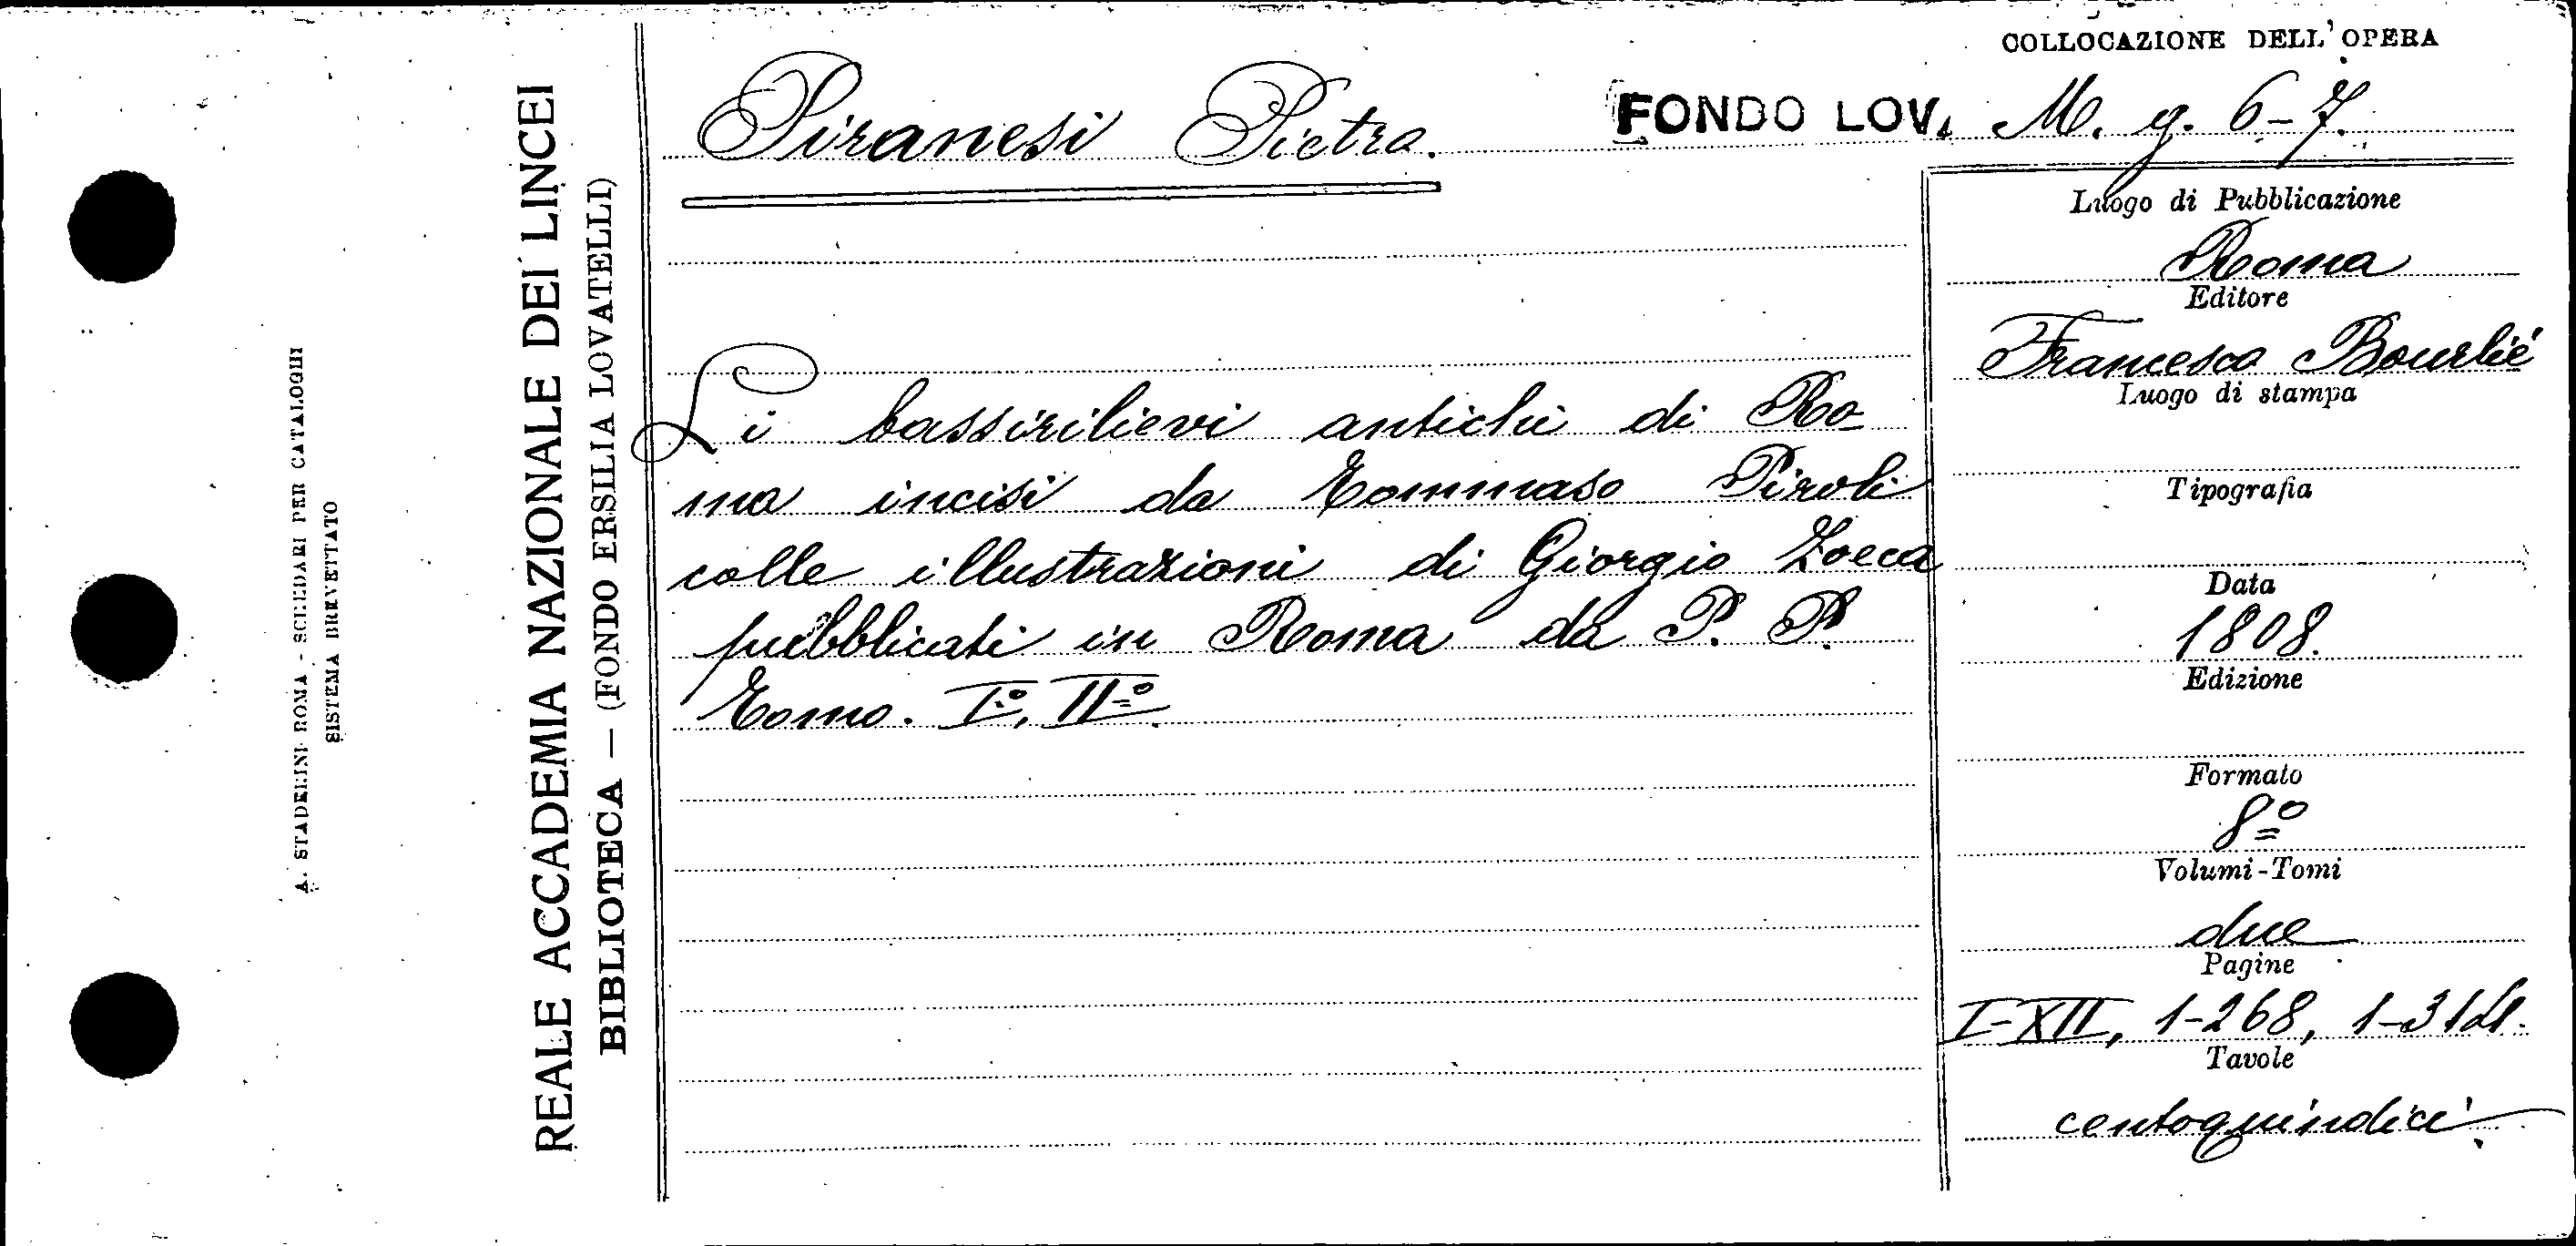 COLLOCAZIONE DELL'OPERA
Piranesi Pietro.
FONDO LOV. M. g. 6-7.
Li bassirilievi antichi di Ro-
ma incisi da Tommaso Piroli
colle illustrazioni di Giorgio Zoega
pubblicati in Roma da P. P.
Tomo. Iº, IIº
Luogo di Pubblicazione
Roma
Editore
Francesco Bourlié
Luogo di stampa
Tipografia
Data
1808.
Edizione
Formato
8º
Volumi-Tomi
due
Pagine
I-XII, 1-268, 1-31
Tavole
centoquindici.
REALE ACCADEMIA NAZIONALE DEI LINCEI
BIBLIOTECA — (FONDO ERSILIA LOVATELLI)
A. STADERINI ROMA - SCHEDARI PER CATALOGHI
SISTEMA BREVETTATO